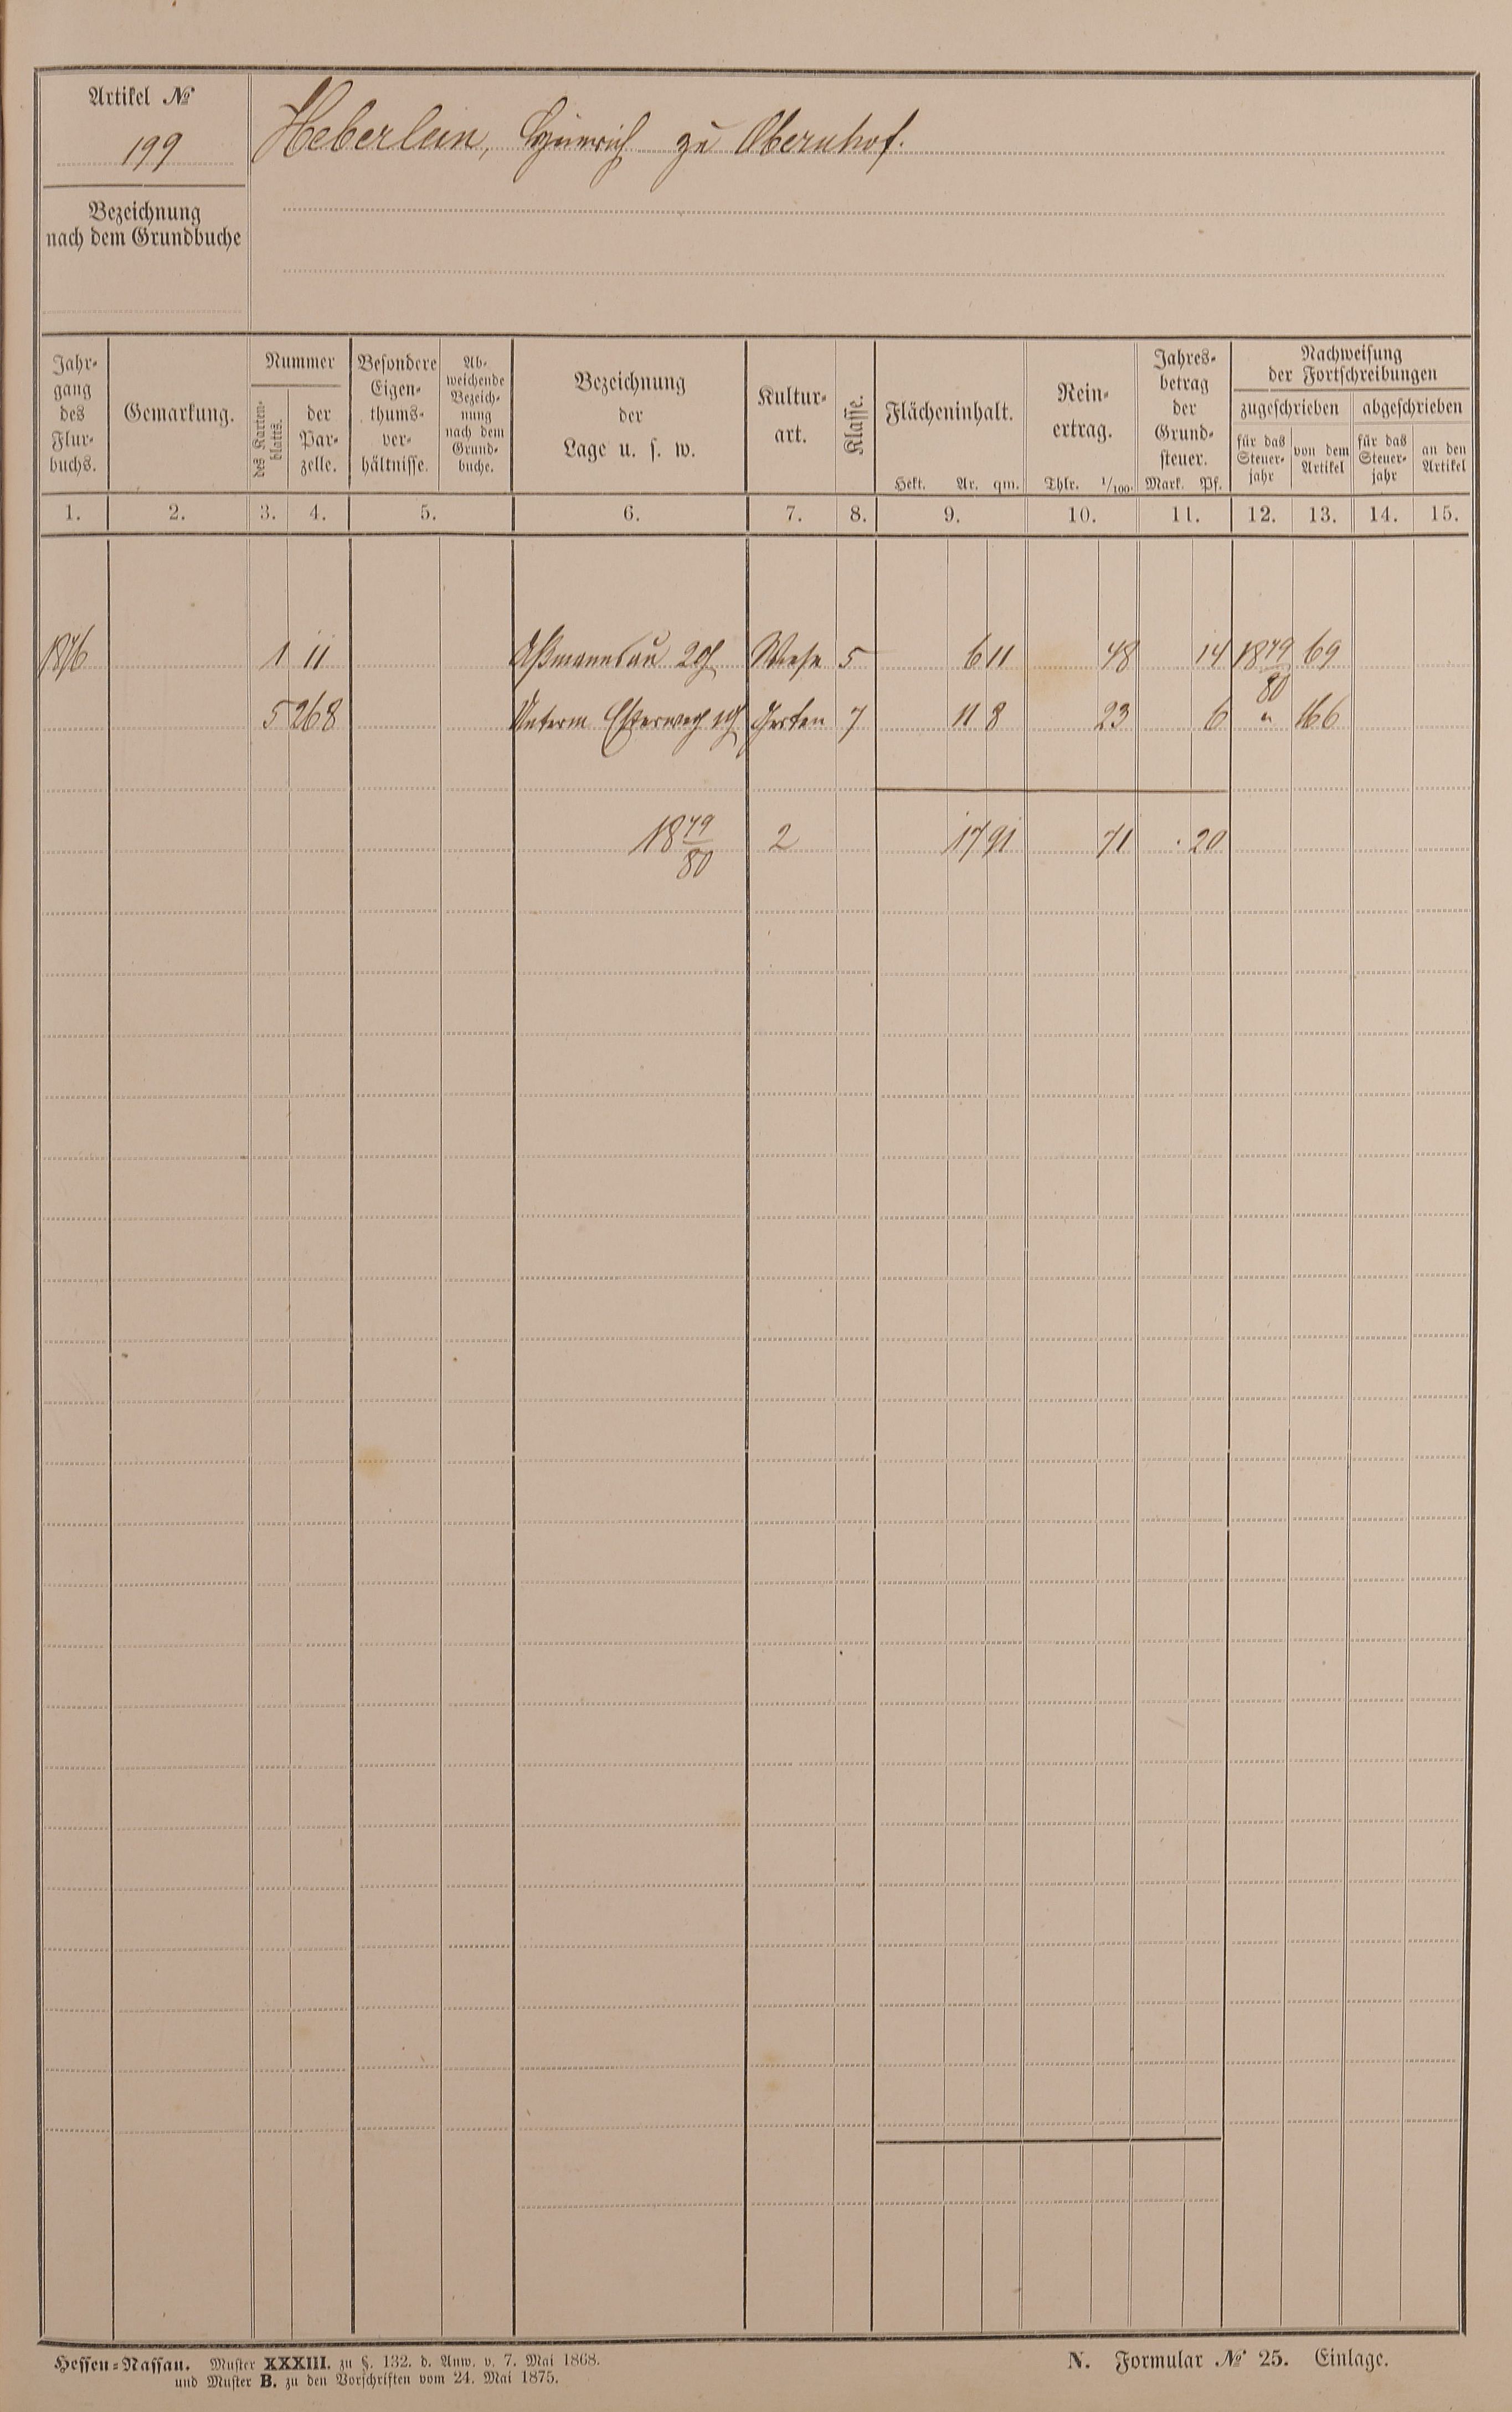 Artikel №
199
Heberlein, Heinrich zu Obernhof.
Bezeichnung
nach dem Grundbuche
Jahr-
gang
des
Flur-
buchs.
Gemarkung.
Nummer
des Karten-
blatts.
der
Par-
zelle.
Besondere
Eigen-
thums-
ver-
hältnisse.
Ab-
weichende
Bezeich-
nung
nach dem
Grund-
buche.
Bezeichnung
der
Lage u. s. w.
Kultur-
art.
Klasse.
Flächeninhalt.
Hekt. Ar. qm.
Rein-
ertrag.
Thlr. 1/100.
Jahres-
betrag
der
Grund-
steuer.
Mark. Pf.
Nachweisung
der Fortschreibungen
zugeschrieben
abgeschrieben
für das
Steuer-
jahr
von dem
Artikel
für das
Steuer-
jahr
an den
Artikel
1. 2. 3. 4. 5. 6. 7. 8. 9. 10. 11. 12. 13. 14. 15.
1876 1 11 Aßmannsau Wiese 5 6 11 48 14 1879/80 69
5 268 Unterm Garten 7 11 8 23 6 " 166
1879/80 2 17 91 71 . 20
Hessen-Nassau. Muster XXXIII. zu §. 132. d. Anw. v. 7. Mai 1868.
und Muster B. zu den Vorschriften vom 24. Mai 1875.
N. Formular № 25. Einlage.